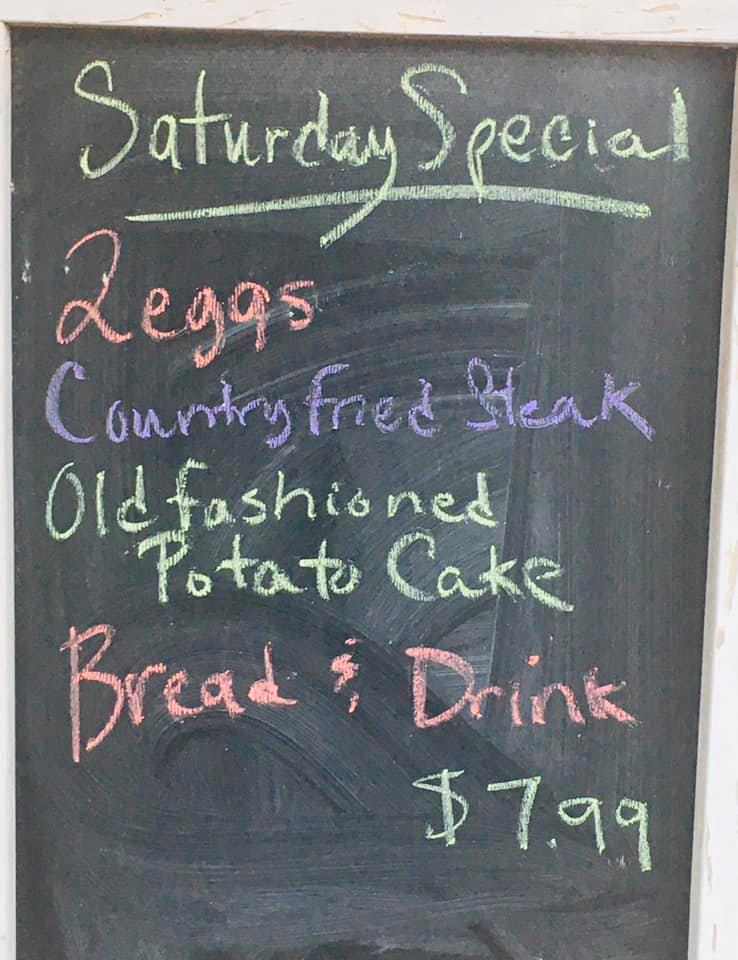 Saturday Special
2 eggs
Country fried Steak
Old fashioned
Potato Cake
Bread & Drink
$7.99